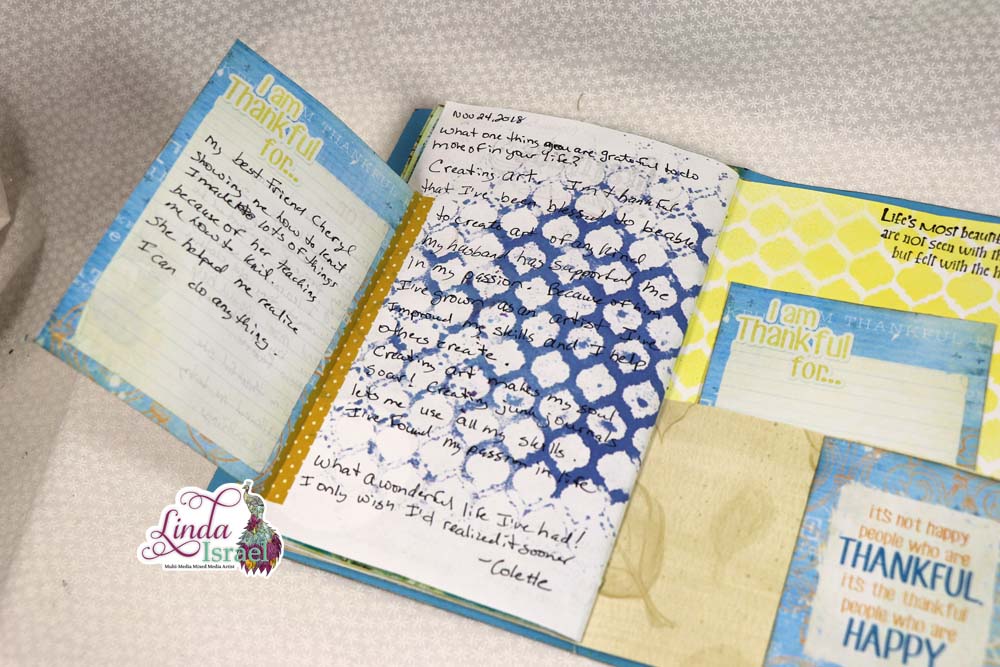 I am
Thankful
for...
My best friend Cheryl
showing me how to knit
I made lots of things
because of her teaching
me how to knit.
She helped me realize
I can do anything.
Nov 24, 2018
What one thing you are grateful to do
more of in your life?
Creating art. I'm thankful
that I've been blessed to be able
to create art of any kind
My husband has supported me
in my passion. Because of him
I've grown as an artist I've
Improved my skills and I help
others create.
Creating art makes my soul
soar! Creating junk journals
lets me use all my skills.
I've found my passion in life
What a wonderful life I've had!
I only wish I'd realized it sooner
-Colette
Life's most beautif
are not seen with th
but felt with the h
I am
Thankful
for...
M THANKFUL
it's not happy
people who are
THANKFUL
it's the thankful
people who are
HAPPY
Linda
Israel
Multi-Media Mixed Media Artist